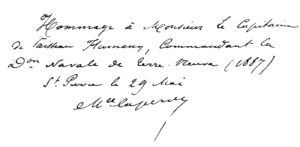 Hommage à Monsieur le Capitaine
de Vaisseau Humann, Commandant la
Don Navale de Terre-Neuve (1887)
St Pierre le 29 Mai